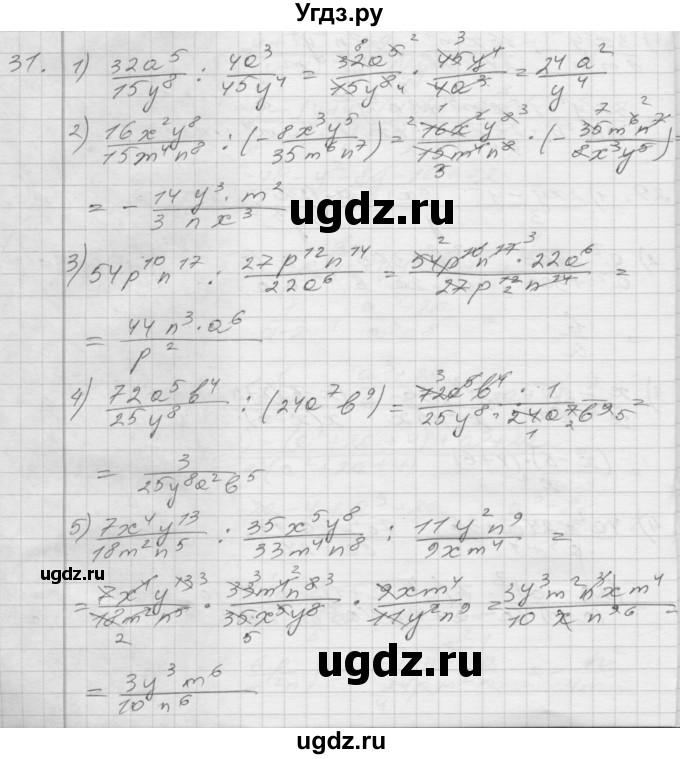 Угдз.ру
31. 1) 32a⁵/15y⁸ : 4a³/45y⁴ = 32a⁵/15y⁸ · 45y⁴/4a³ = 24a²/y⁴
2) 16x²y⁸/15m⁴n⁸ : (- 8x³y⁵/35m⁶n⁷) = 16x²y⁸/15m⁴n⁸ · (- 35m⁶n⁷/8x³y⁵) =
= - 14y³·m²/3nx³
ugdz.ru
3) 54p¹⁰n¹⁷ : 27p¹²n¹⁴/22a⁶ = 54p¹⁰n¹⁷·22a⁶/27p¹²n¹⁴ =
= 44n³·a⁶/p²
4) 72a⁵b⁴/25y⁸ : (24a⁷b⁹) = 72a⁵b⁴·1/25y⁸·24a⁷b⁹ =
= 3/25y⁸a²b⁵
5) 7x⁴y¹³/18m²n⁵ : 35x⁵y⁸/33m⁴n⁸ : 11y²n⁹/9xm⁴ =
ugdz.ru
= 7x⁴y¹³/18m²n⁵ · 33m⁴n⁸/35x⁵y⁸ · 9xm⁴/11y²n⁹ = 3y³m²n³xm⁴/10xn⁹ =
ugdz.ru
= 3y³m⁶/10n⁶
ugdz.ru